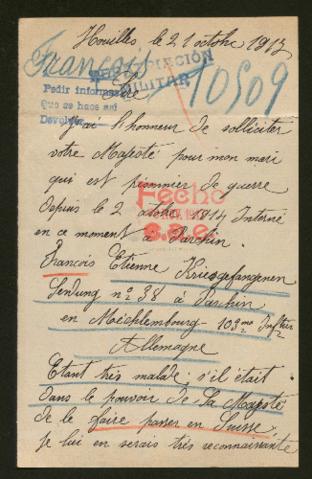 Houilles le 21 octobre 1917
François
10509
MILITAR
Pedir informes
Que se hace así
Sire
J'ai l'honneur de solliciter
votre Majesté pour mon mari
qui est prisonnier de guerre
Fecho
depuis le 2 octobre 1914 Interné
en ce moment à Parchim.
François Etienne Kriegsgefangenen
Sendung n° 38 à Parchim
en Mecklembourg - 103me Inftrie
Allemagne
Etant très malade s'il était
dans le pouvoir de Sa Majesté
de le faire passer en Suisse
je lui en serais très reconnaissante